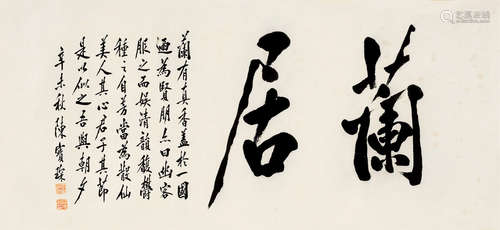 蘭居
蘭有真香盖於一國
通為賢朋亦曰幽客
服之而媄清韻馥鬱
種之自芳當為散仙
美人其心君子其節
是以似之吾與朝夕
辛未秋陳寶琛